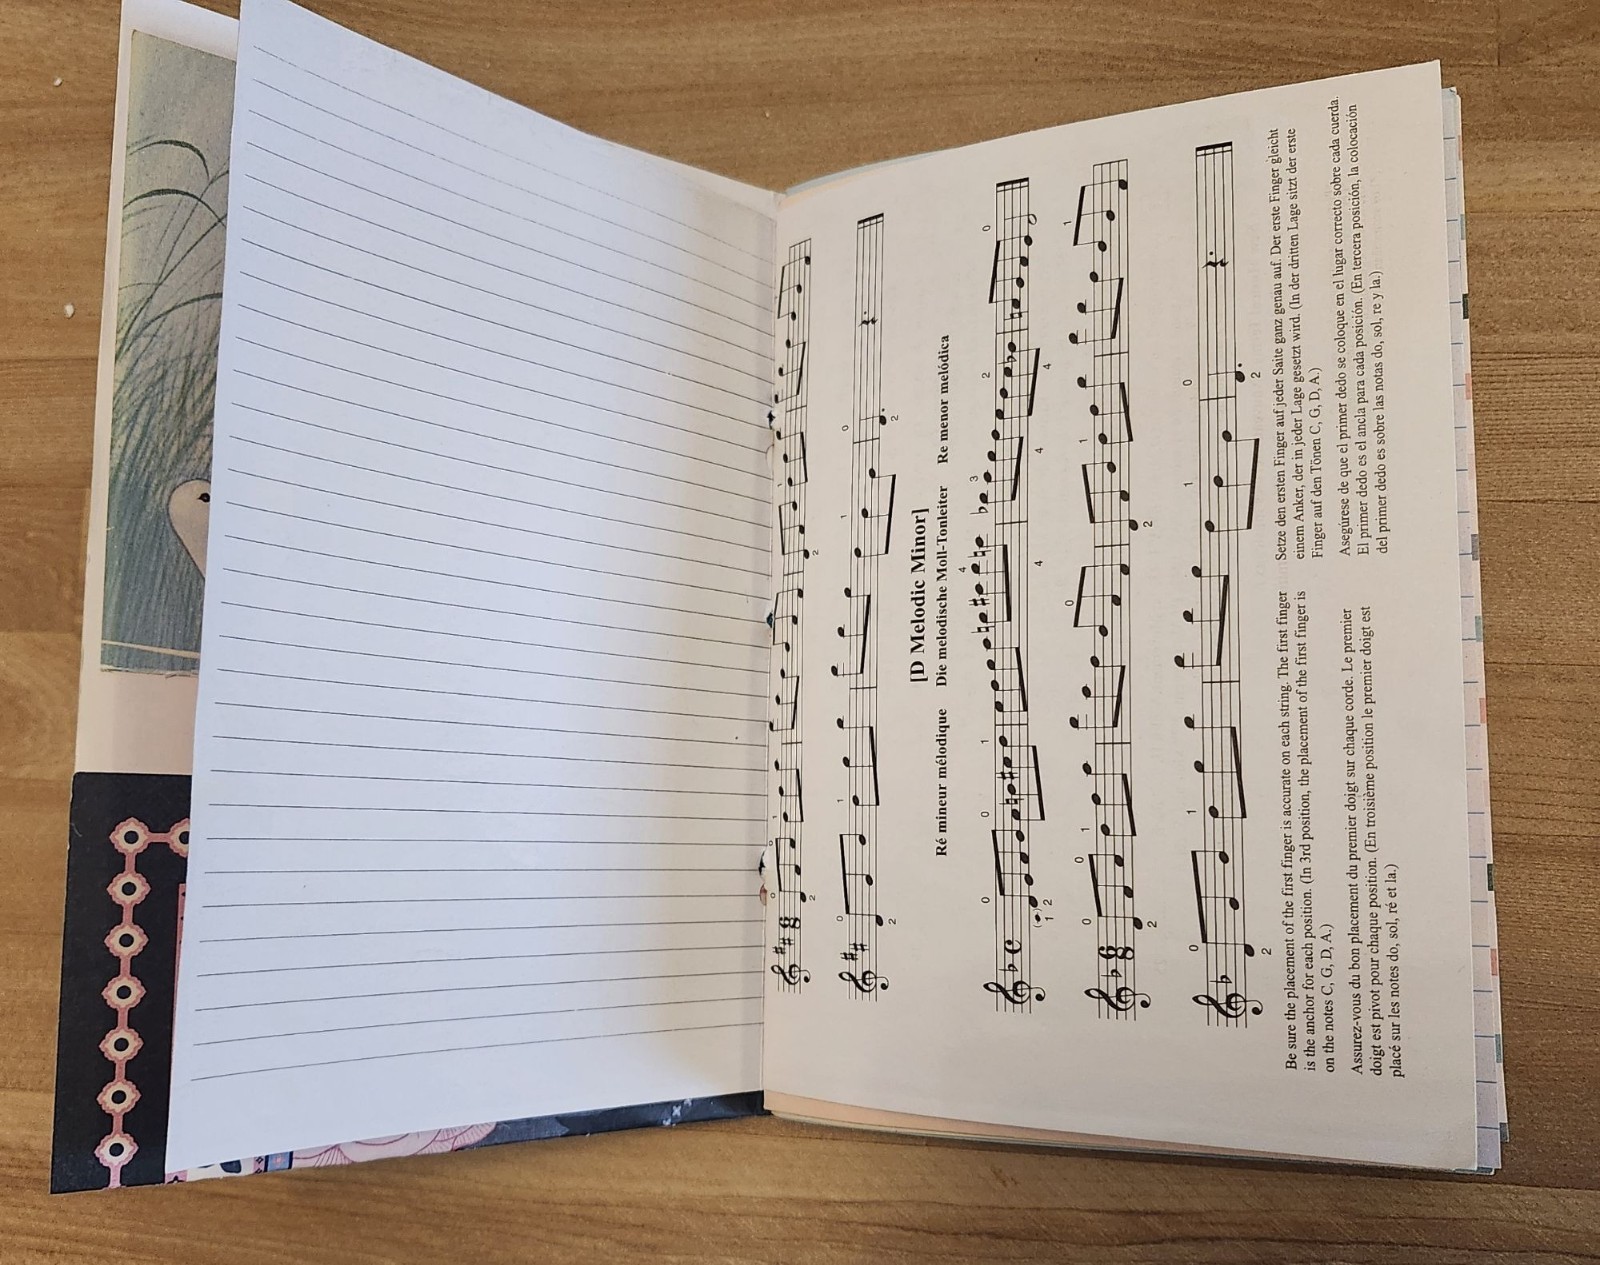 [D Melodic Minor]
Ré mineur mélodique Die melodische Moll-Tonleiter Re menor melódica
Be sure the placement of the first finger is accurate on each string. The first finger
is the anchor for each position. (In 3rd position, the placement of the first finger is
on the notes C, G, D, A.)
Assurez-vous du bon placement du premier doigt sur chaque corde. Le premier
doigt est pivot pour chaque position. (En troisième position le premier doigt est
placé sur les notes do, sol, ré et la.)
Setze den ersten Finger auf jeder Saite ganz genau auf. Der erste Finger gleicht
einem Anker, der in jeder Lage gesetzt wird. (In der dritten Lage sitzt der erste
Finger auf den Tönen C, G, D, A.)
Asegúrese de que el primer dedo se coloque en el lugar correcto sobre cada cuerda.
El primer dedo es el ancla para cada posición. (En tercera posición, la colocación
del primer dedo es sobre las notas do, sol, re y la.)